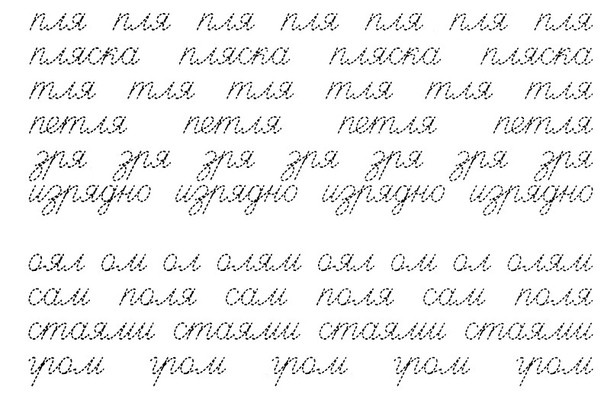 пля пля пля пля пля пля пля
пляска пляска пляска пляска
тля тля тля тля тля тля
петля петля петля петля
зря зря зря зря зря зря зря
изрядно изрядно изрядно изрядно
оял ом ол олям оял ом ол олям
сам поля сам поля сам поля
стаями стаями стаями стаями
уром уром уром уром уром